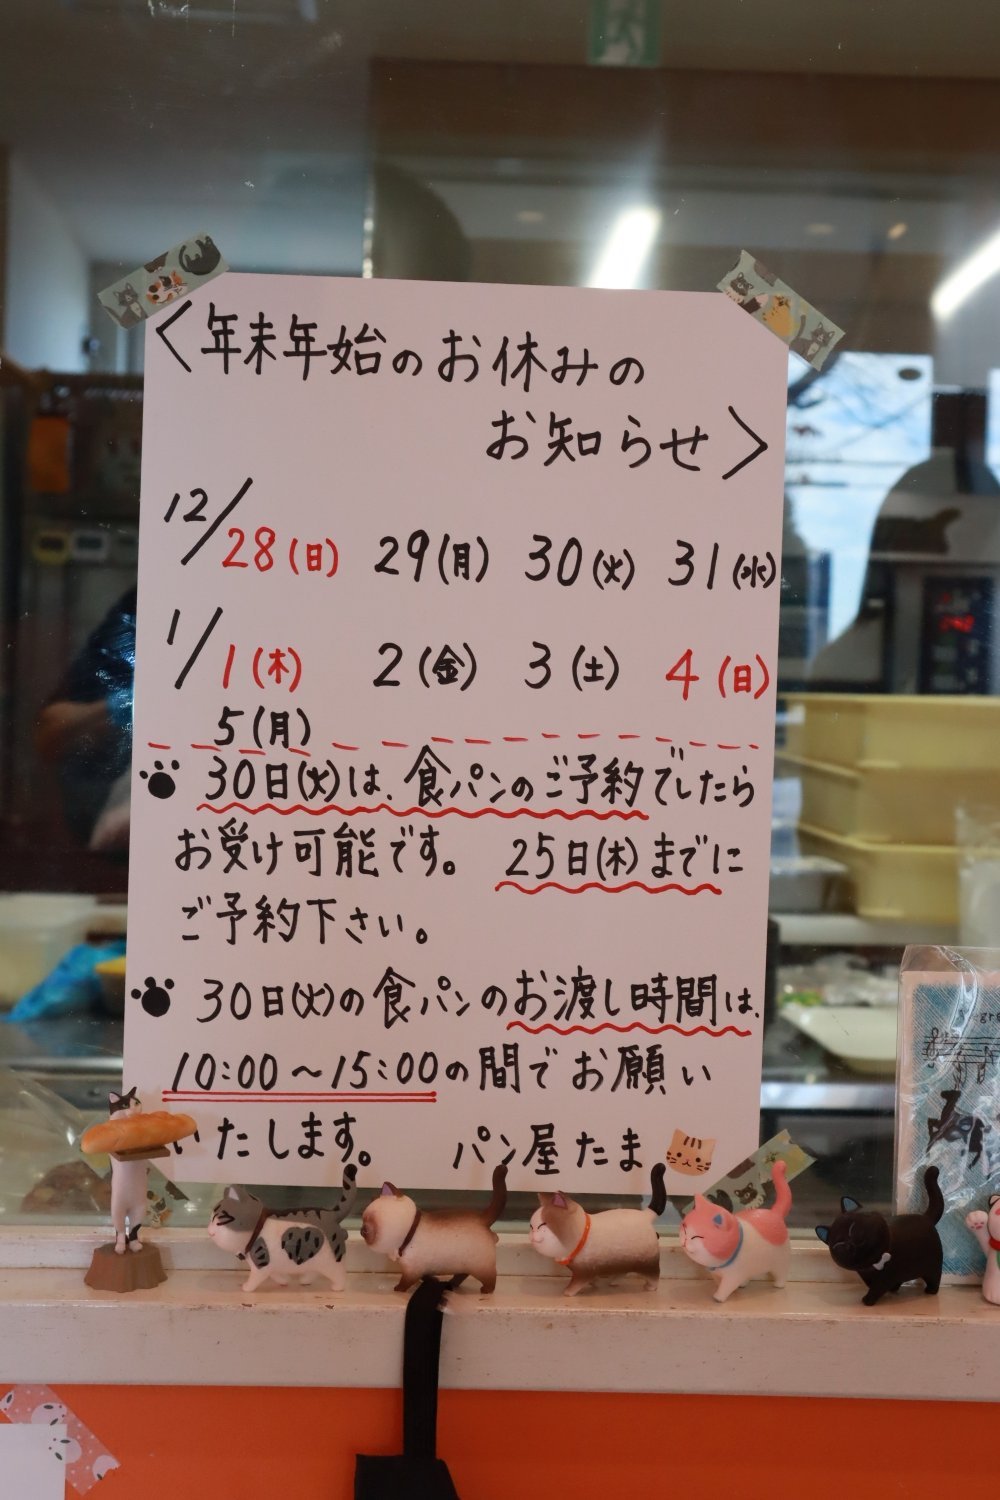 〈年末年始のお休みの
お知らせ〉
12/28(日) 29(月) 30(火) 31(水)
1/1(木) 2(金) 3(土) 4(日)
5(月)
30日(火)は、食パンのご予約でしたら
お受け可能です。 25日(木)までに
ご予約下さい。
30日(火)の食パンのお渡し時間は、
10:00~15:00の間でお願い
いたします。 パン屋たま